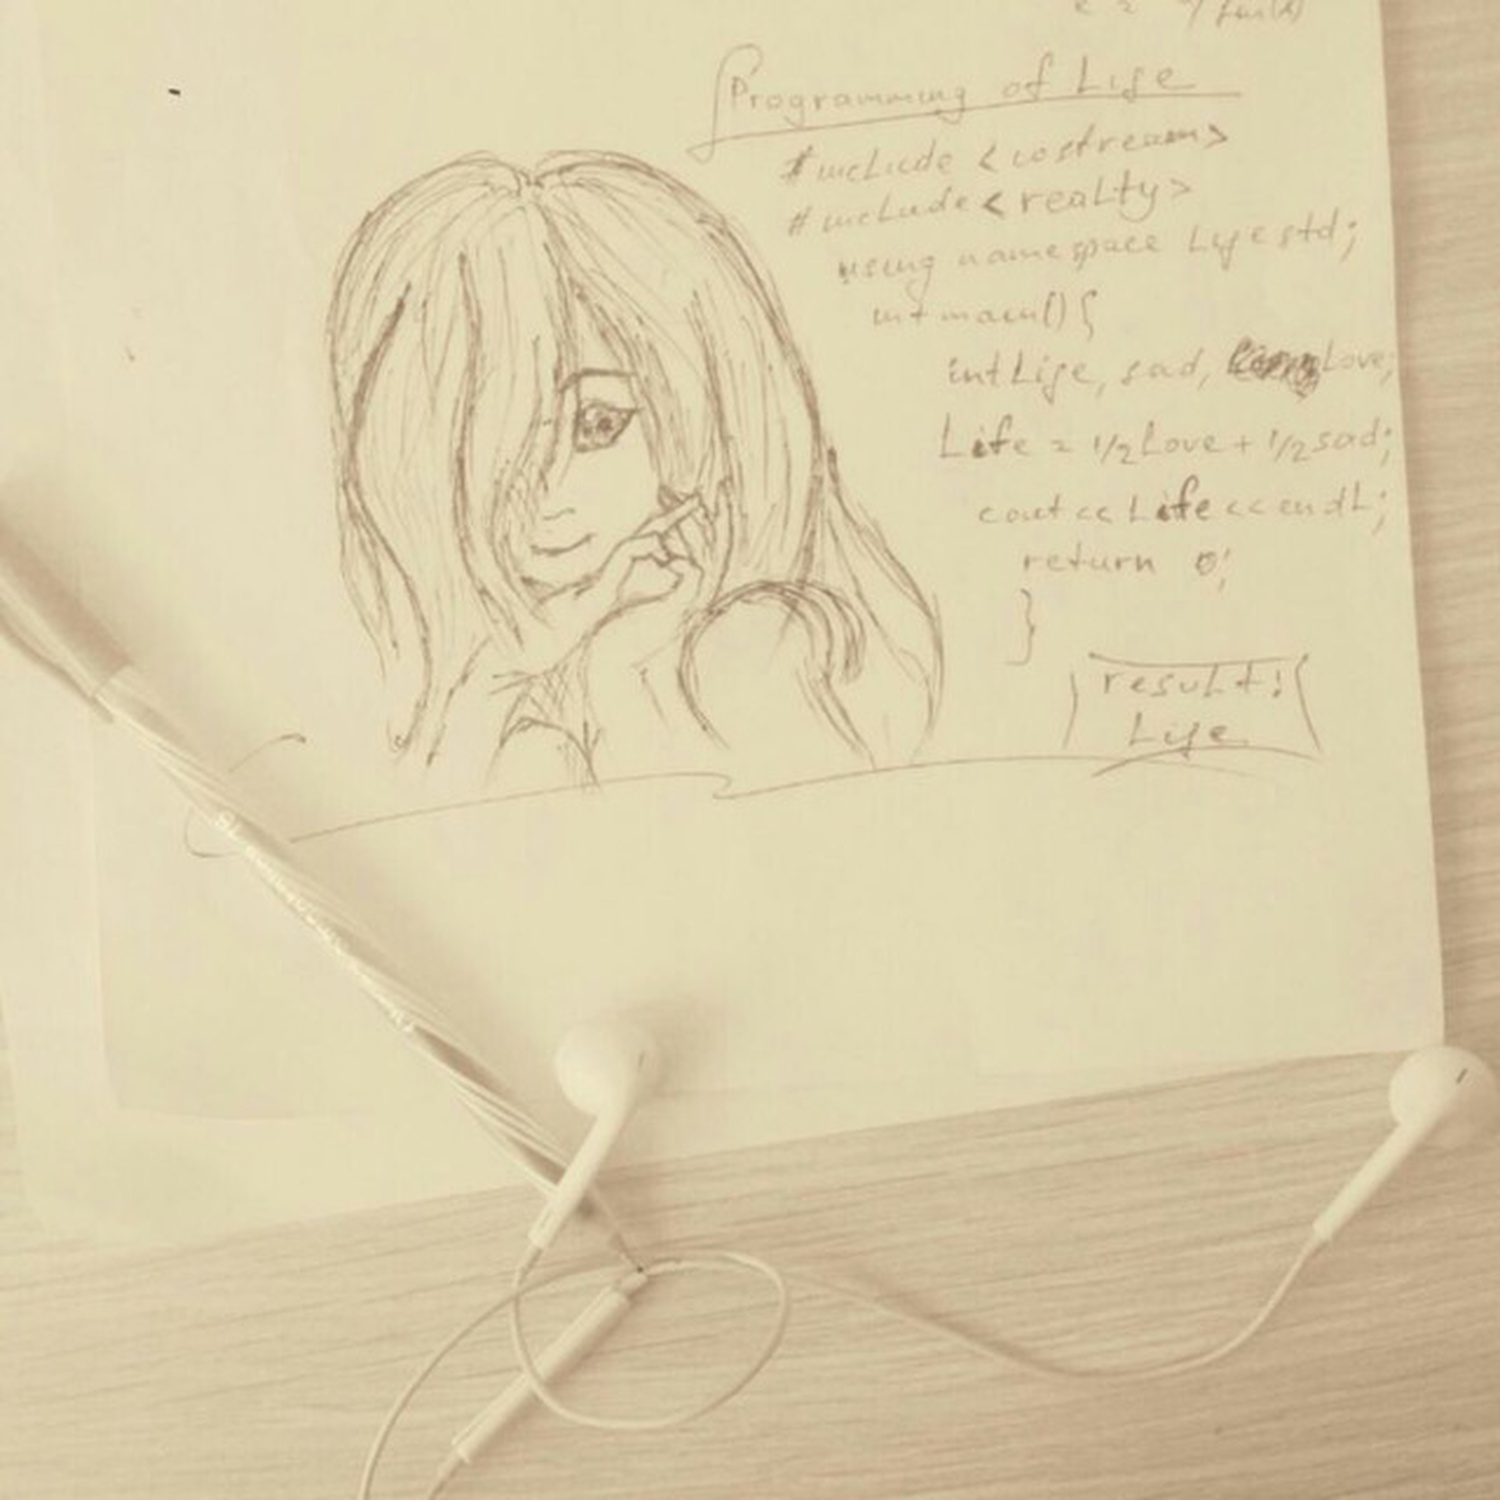 Programming of Life
#include <iostream>
#include <realty>
using namespace Lifestd;
int main() {
int Life, sad, Love;
Life = 1/2 Love + 1/2 sad;
cout << Life << endl;
return 0;
}
result:
Life